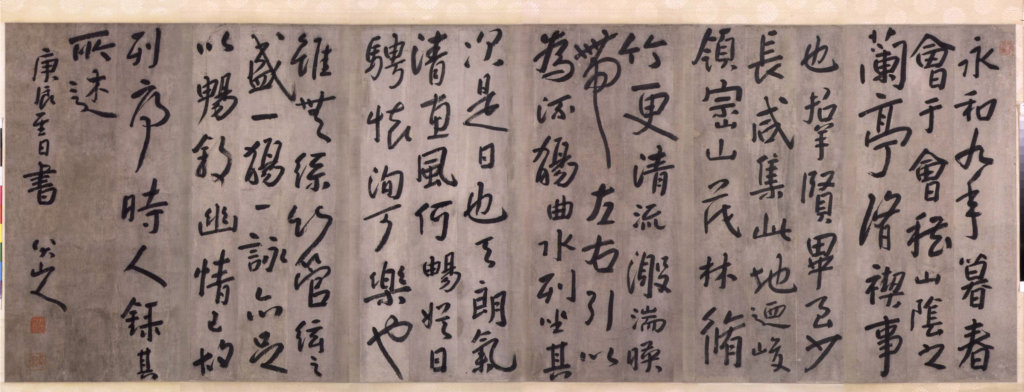 永和九年暮春
會于會稽山陰之
蘭亭脩禊事
也招羣賢畢至少
長咸集此地迺峻
領崇山茂林脩
竹更清流激湍暎
帶左右引以
為流觴曲水列坐其
次是日也天朗氣
清惠風何暢娛目
騁懷洵可樂也
雖無絲竹管絃之
盛一觴一詠亦足
以暢敘幽情已故
列序時人錄其
所述
庚辰至日書 八大山人